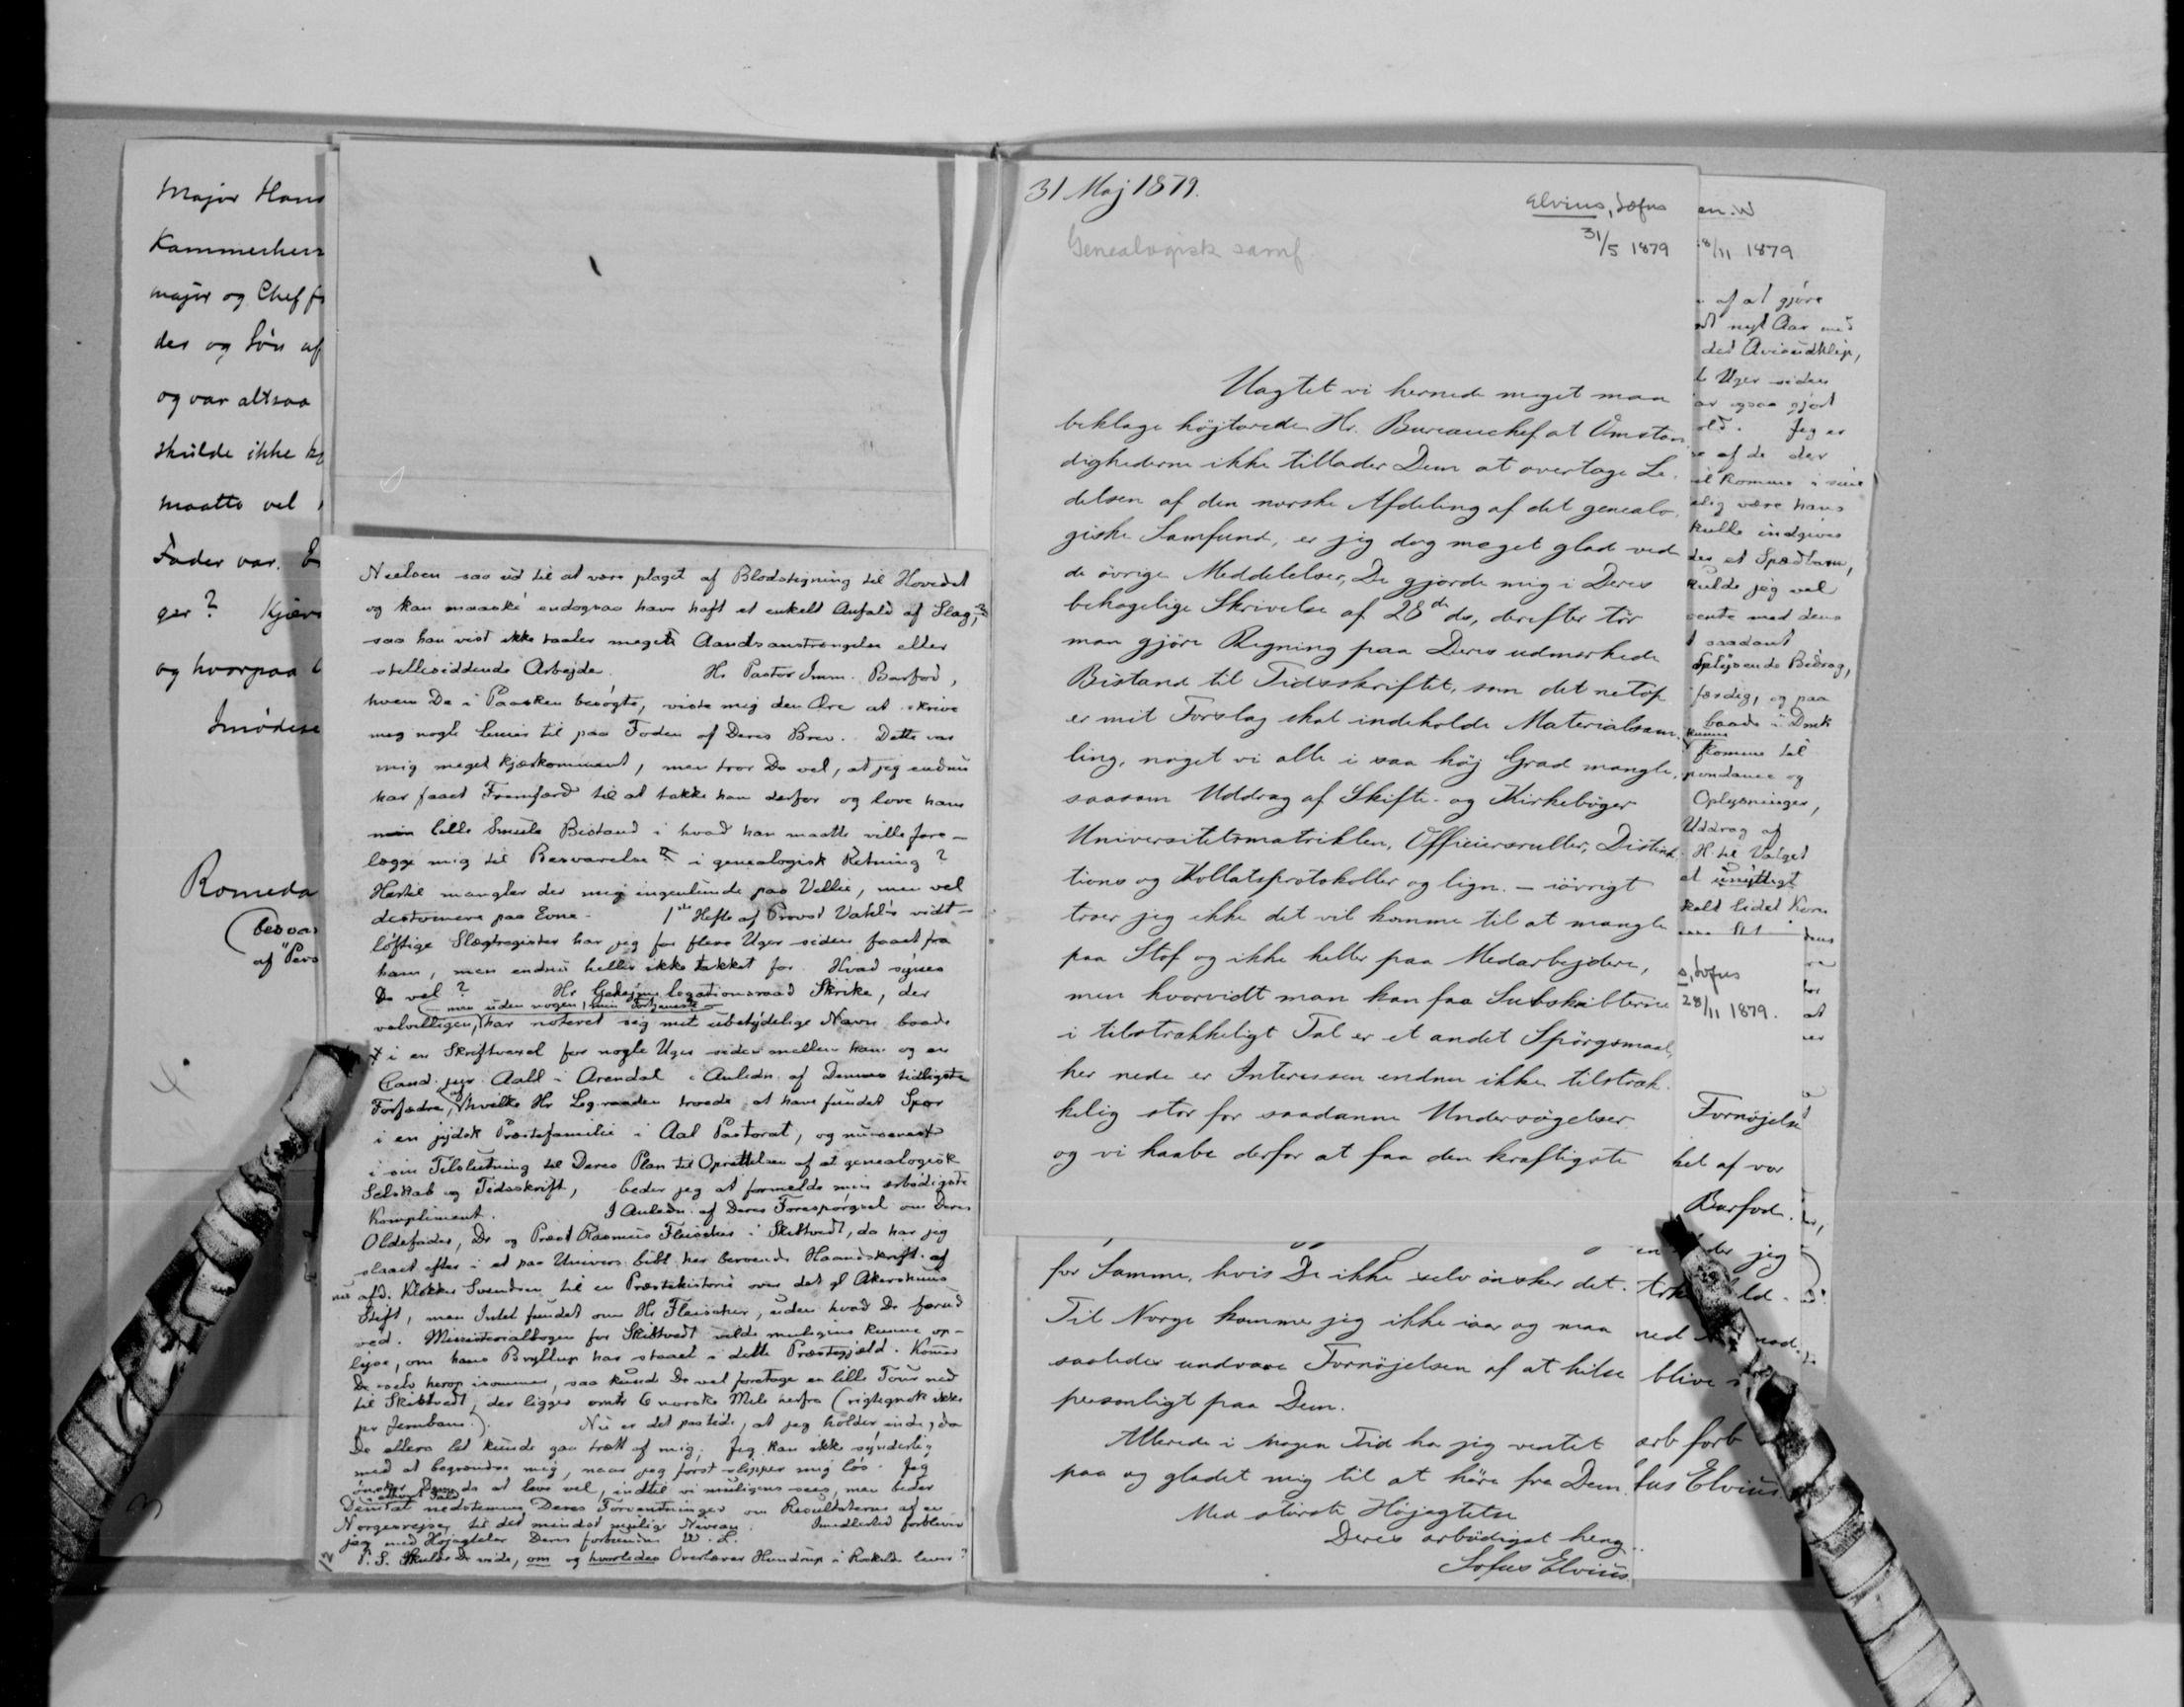 Major Hans
Kammerherr
major og Chef f
der og Søn af
og var altsaa
skulde ikke
maatte vel
Fader var.
ger? Kjære
og hvorpaa
Imødese
Romeda
(besva
af "Pers
Nielsen saa ud til at være plaget af Blodstigning til Hovedet
og kan maaske endogsaa have haft et enkelt Anfald af Slag,
saa han vist ikke taaler megen Aandsanstrengelse eller
stillesiddende Arbejde. Hr Pastor Imm. Barfod,
hvem De i Paasken besøgte, viste mig den Ære at skrive
mig nogle Linier til paa Foden af Deres Brev. Dette var
mig meget kjærkomment, men tror De vel, at jeg endnu
har faaet Fremfærd til at takke ham derfor og love ham
min lille Smule Bistand i hvad han maatte ville fore-
lægge mig til Besvarelse i genealogisk Retning?
Hertil mangler der mig ingenlunde paa Villie, men vel
destomere paa Evne. 1ste Hefte af Provst Vahl's vidt-
løftige Slægtregister har jeg for flere Uger siden faaet fra
ham, men endnu heller ikke takket for. Hvad synes
De vel? Hr Gehejme Legationsraad Skrike, der
men uden nogen, min Fortjeneste
velvilligen, har noteret sig mit ubetydelige Navn baade
i en Skriftvexel for nogle Uger siden mellem ham og en
Cand. jur. Aall i Arendal i Anledn. af Dennes tidligste
Forfædre, af hvilke Hr Leg.raaden troede at have fundet Spor
i en jydsk Præstefamilie i Aal Pastorat, og nu senest
i sin Tilslutning til Deres Plan til Oprettelsen af et genealogisk
Selskab og Tidsskrift, beder jeg at formelde min ærbødigste
Kompliment. I Anledn. af Deres Forespørgsel om Deres
Oldefader, Dr og Præst Rasmus Fleischer i Skibtvedt, da har jeg
slaaet efter i et paa Univers. bibl. her beroende Haandskrift af
nu afd. Klokker Svendsen til en Præstehistorie over det gl Akershuus
Stift, men Intet fundet om Hr Fleischer, uden hvad De forud
ved. Ministerialbogen for Skibtvedt vilde muligens kunne op-
lyse, om hans Bryllup har staaet i dette Præstegjæld. Kommer
De selv herop isommer, saa kunde De vel foretage en lille Tour ned
til Skibtvedt, der ligger omtr 6 norske Mile herfra (rigtignok ikke
pr Jernbane). Nu er det paa tide, at jeg holder inde, da
De ellers let kunde gaa træt af mig. Jeg kan ikke synderlig
med at begrændse mig, naar jeg først slipper mig løs. Jeg
ønsker Dem da at leve vel, indtil vi muligens sees, men beder
i ethvert Fald
Dem at nedstemme Deres Forventninger om Resultaterne af en
Norgesrejse til det mindst mulige Niveau. Imidlertid forbliver
jeg med Højagtelse Deres forbundne W. L.
P. S. Skulde De vide, om og hvorledes Overlærer Hundrup i Roskilde lever?
12
3
31 Maj 1879.
Elvius, Sofus
31/5 1879
Genealogisk samf
Uagtet vi hernede meget maa
beklage højtærede Hr. Bureauchef at Omstæn
dighederne ikke tillader Dem at overtage Le-
delsen af den norske Afdeling af det genealo-
giske Samfund, er jeg dog meget glad ved
de øvrige Meddelelser, De gjorde mig i Deres
behagelige Skrivelse af 28de ds, derefter tør
man gjøre Regning paa Deres udmærkede
Bistand til Tidsskriftet, som det netop
er mit Forslag skal indeholde Materialsam-
ling, noget vi alle i saa høj Grad mangle,
saasom Uddrag af Skifte- og Kirkebøger
Universitetsmatriklen, Officiersruller, Distink-
tions og Kollatsprotokoller og lign. - iøvrigt
troer jeg ikke det vil komme til at mangle
paa Stof og ikke heller paa Medarbejdere,
men hvorvidt man kan faa Subskribterne
i tilstrækkeligt Tal er et andet Spørgsmaal,
her nede er Interessen endnu ikke tilstræk-
kelig stor for saadanne Undersøgelser
og vi haabe derfor at faa den kraftigste
for Samme, hvis De ikke selv ønsker det.
Til Norge kommer jeg ikke iaar og maa
saaledes undvære Fornøjelsen af at hilse
personligt paa Dem.
Allerede i nogen Tid har jeg ventet
paa og glædet mig til at høre fra Dem.
Med største Højagtelse
Deres ærbødigst heng.
Sofus Elvius
en. W
8/11 1879
af at gjøre
nyt Aar med
det Avisudklip,
Uger siden
ar ogsaa gjort
old. Jeg er
se af de der
il komme i sine
elig være hans
kulle indgives
des et Spædbarn,
kulde jeg vel
vente med dens
t saadant
Oplysende Bidrag,
færdig, og paa
baade i Druk
kunne
komme til
pondance og
Oplysninger,
Uddrag af
H. til Valget
et unyttigt
kold lidet Kors
s, Sofus
28/11 1879.
Fornøjelse
het af vor
Barfod.
der jeg
blive
ærb forb
fus Elvius